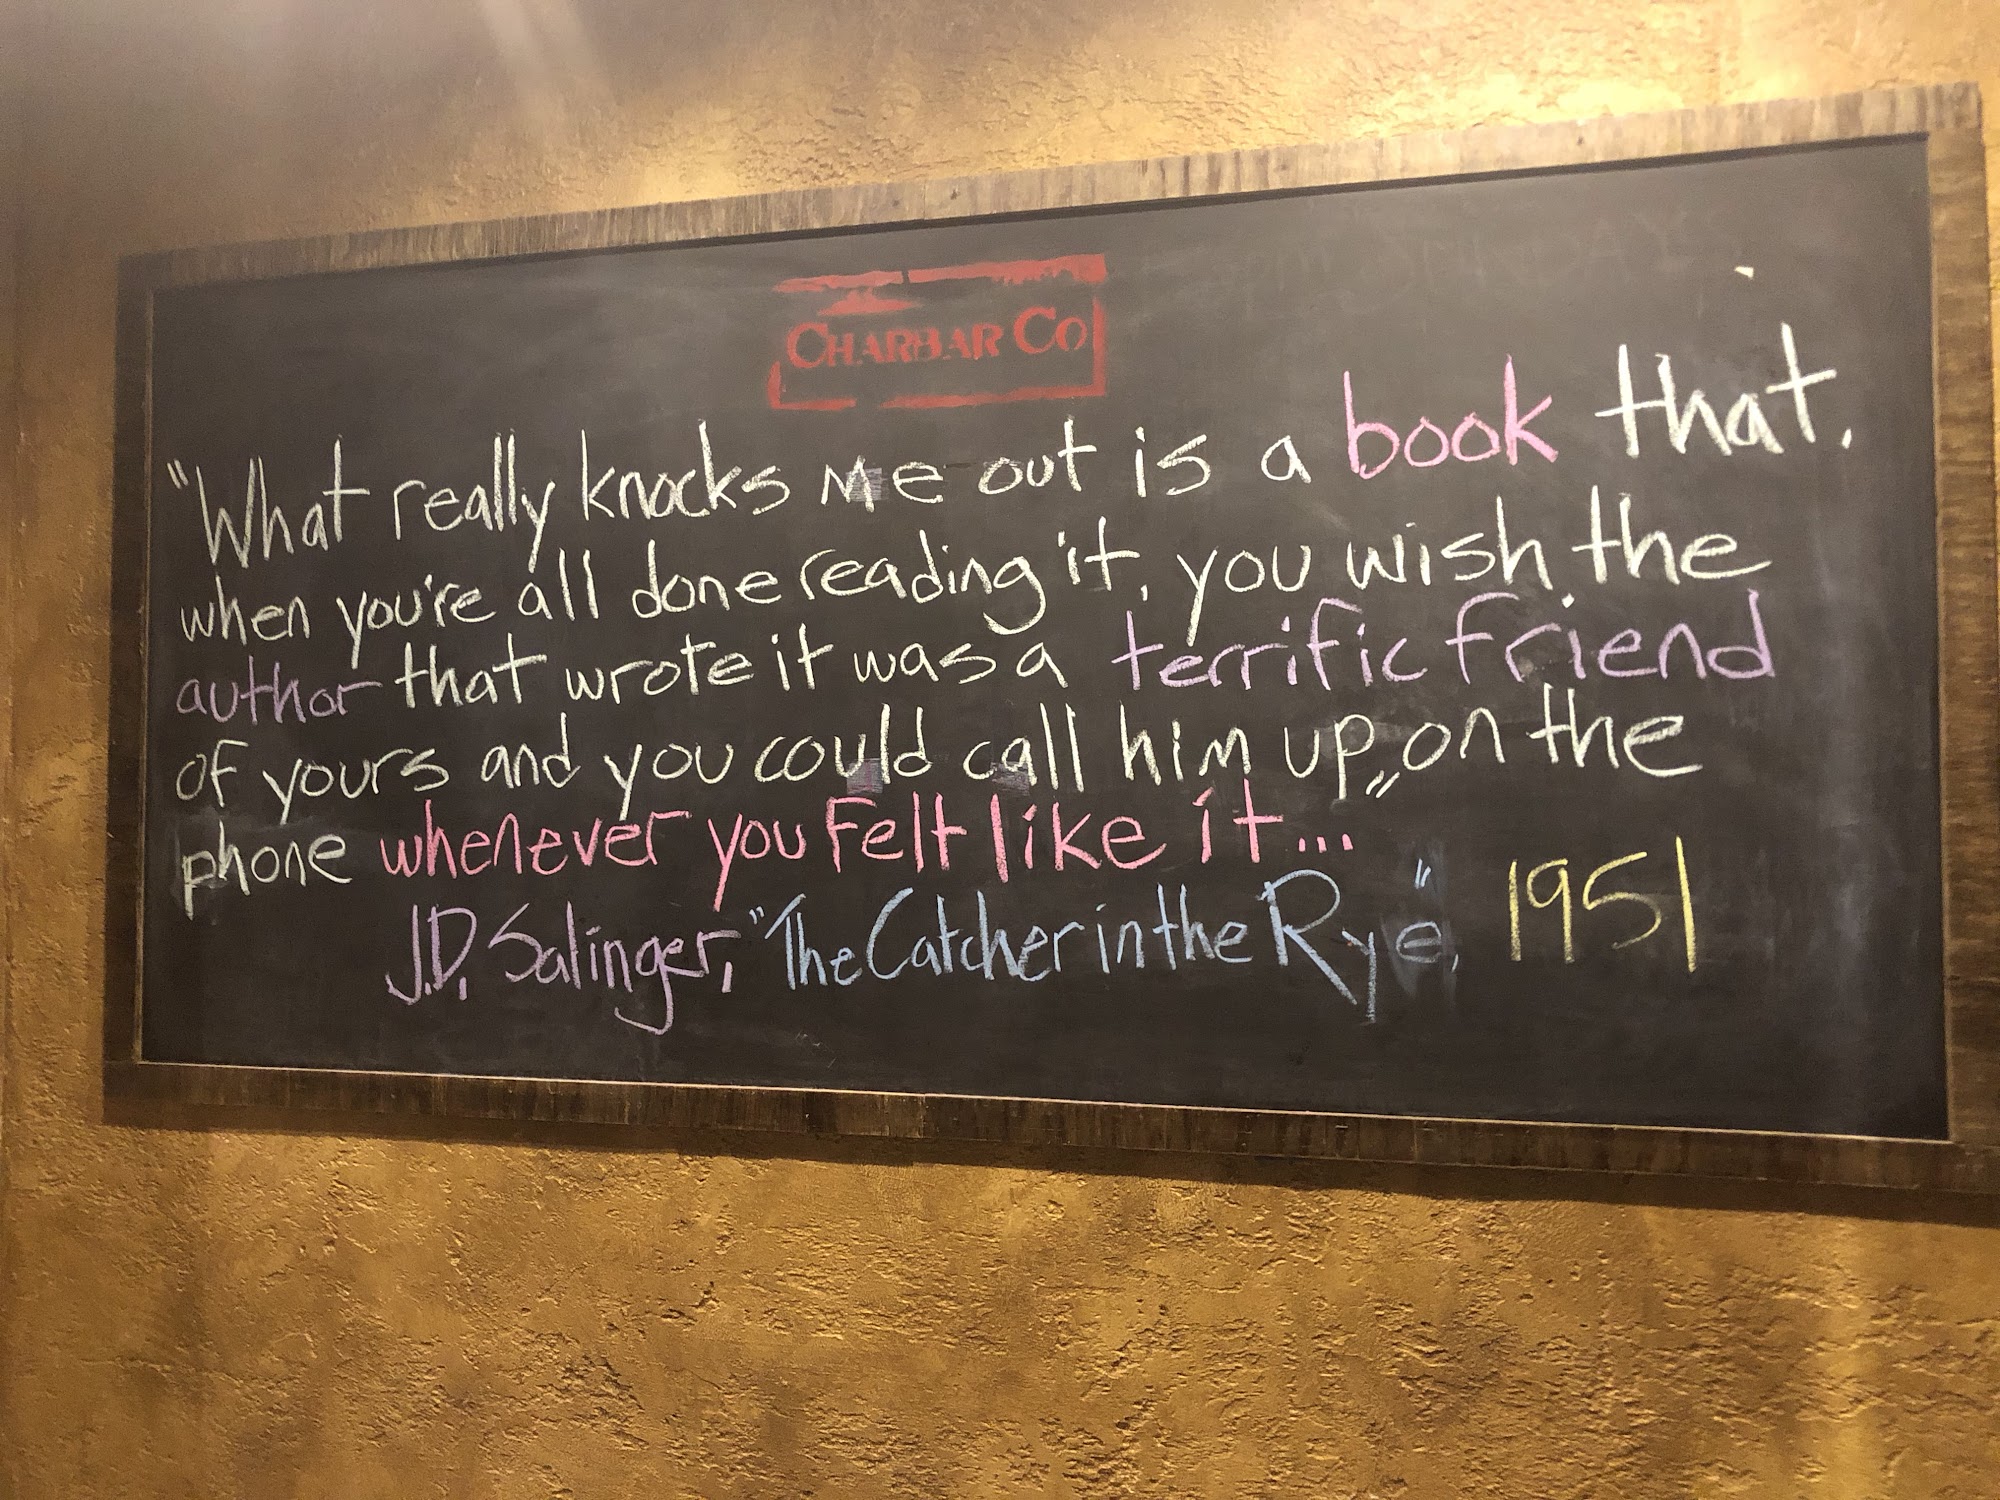 CHARBAR CO
"What really knocks me out is a book that,
when you're all done reading it, you wish the
author that wrote it was a terrific friend
of yours and you could call him up on the
phone whenever you felt like it..."
J.D. Salinger, "The Catcher in the Rye", 1951